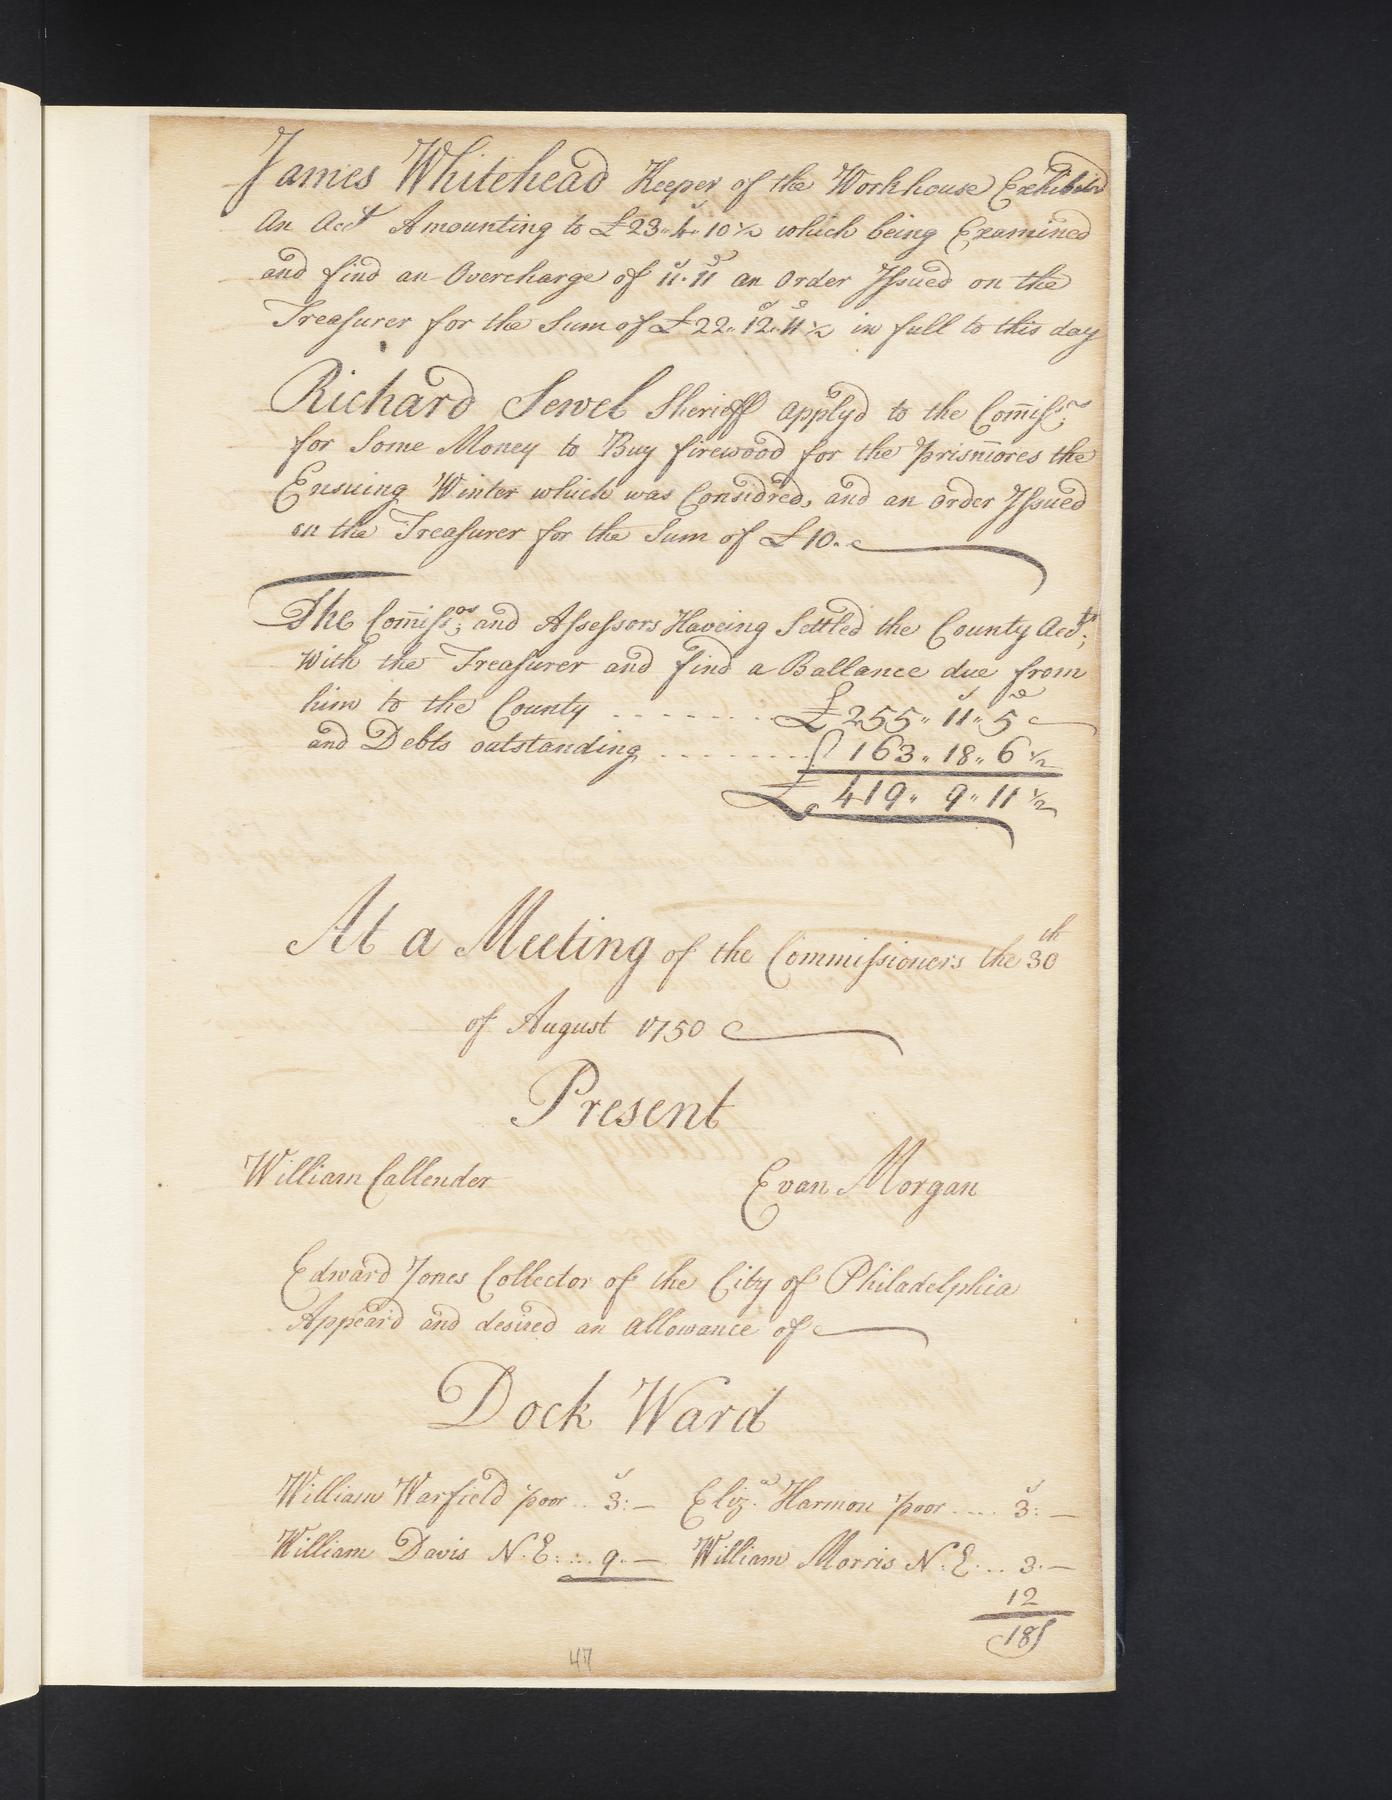 James Whitehead Keeper of the Workhouse Exhibited
An Acct Amounting to £23„ 4s„ 10½ which being Examined
and find an Overcharge of 11s„ 11d an Order Issued on the
Treasurer for the Sum of £22„ 12s„ 11d½ in full to this day
Richard Sewel Sherieff applyd to the Com̄iss:rs
for Some Money to Buy firewood for the prisn̄ores the
Ensuing Winter which was Considred, and an order Issued
on the Treasurer for the Sum of £10„
The Com̄iss:rs and Assessors Haveing Settled the County Acc:ts
With the Treasurer and find a Ballance due from
him to the County ........ £255„ 11s„ 5d
and Debts outstanding ........ £163„ 18„ 6½
£419„ 9„ 11½
At a Meeting of the Commissioners the 30th
of August 1750
Present
William Callender Evan Morgan
Edward Jones Collector of the City of Philadelphia
Appeard and desired an allowance of
Dock Ward
William Warfield poor .. 3s:— Eliz.a Harmon poor .... 3s:—
William Davis N.E: ... 9.— William Morris N.E ... 3.—
12
18s
47